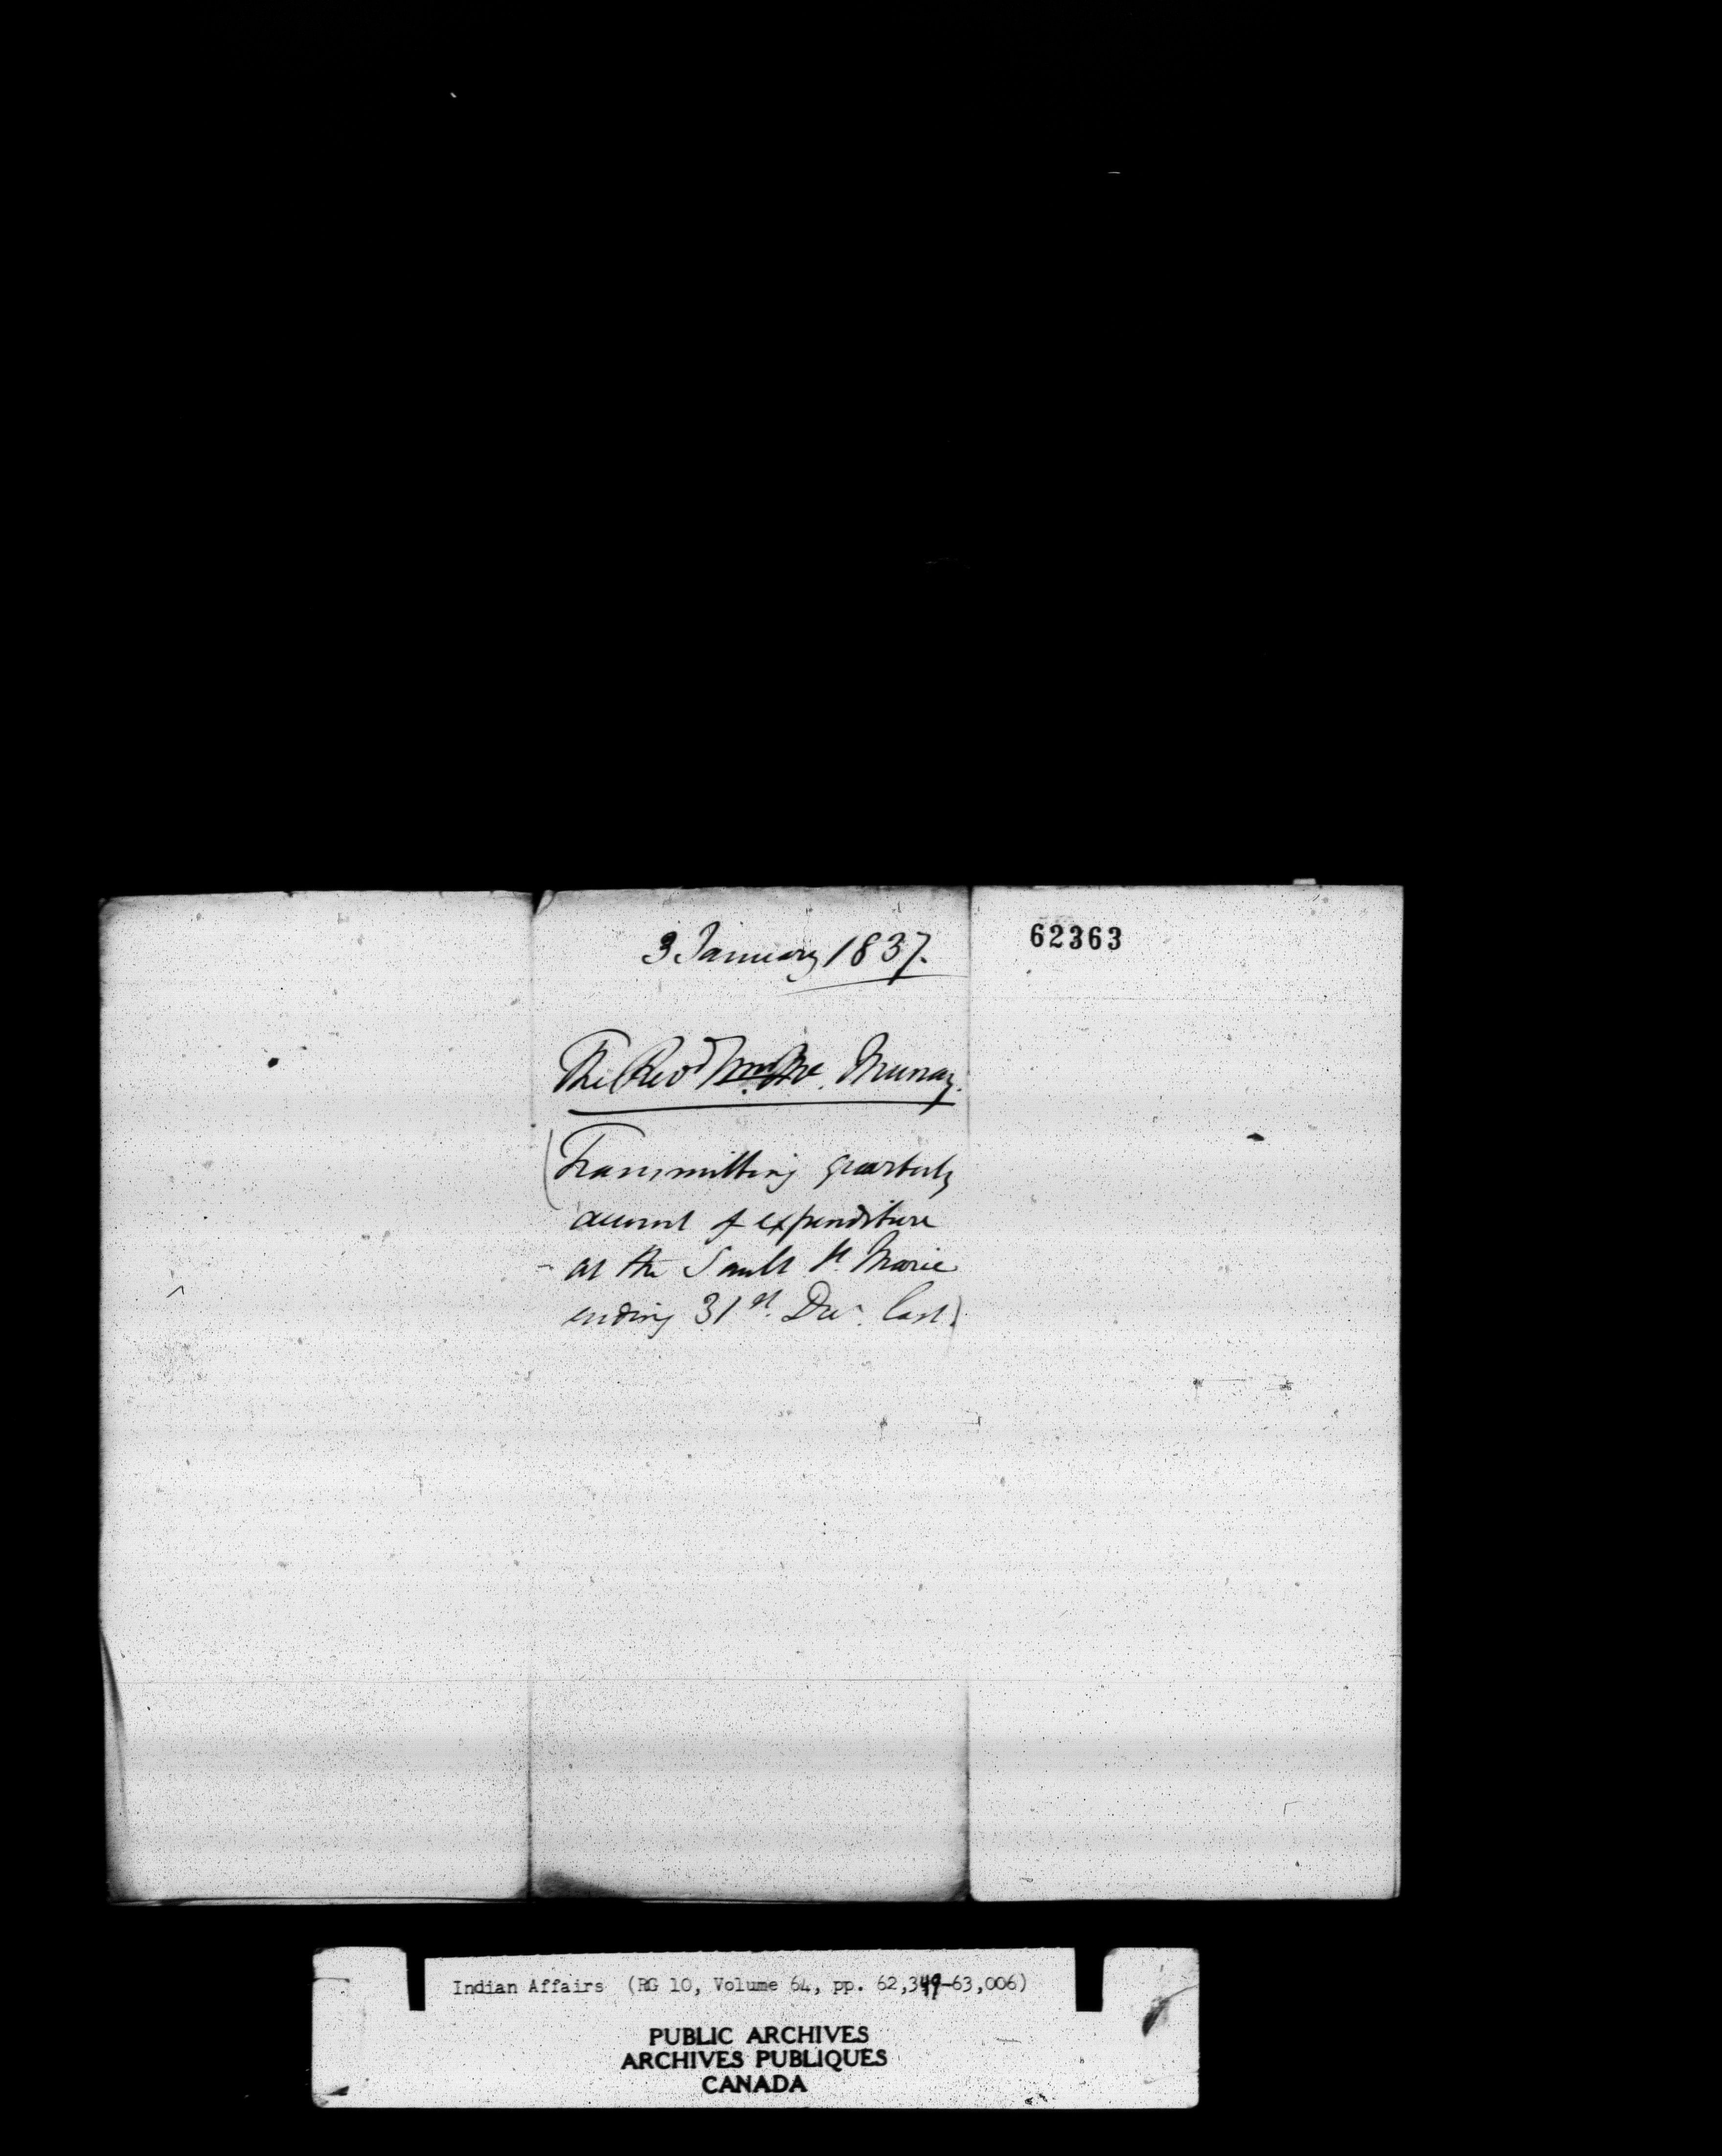 3 January 1837.
62363
The Revd Wm Mc. Murray.
(Transmitting quarterly
account of expenditure
- at the Sault St. Marie
ending 31st. Decr. last.)
Indian Affairs (RG 10, Volume 64, pp. 62,349-63,006)
PUBLIC ARCHIVES
ARCHIVES PUBLIQUES
CANADA